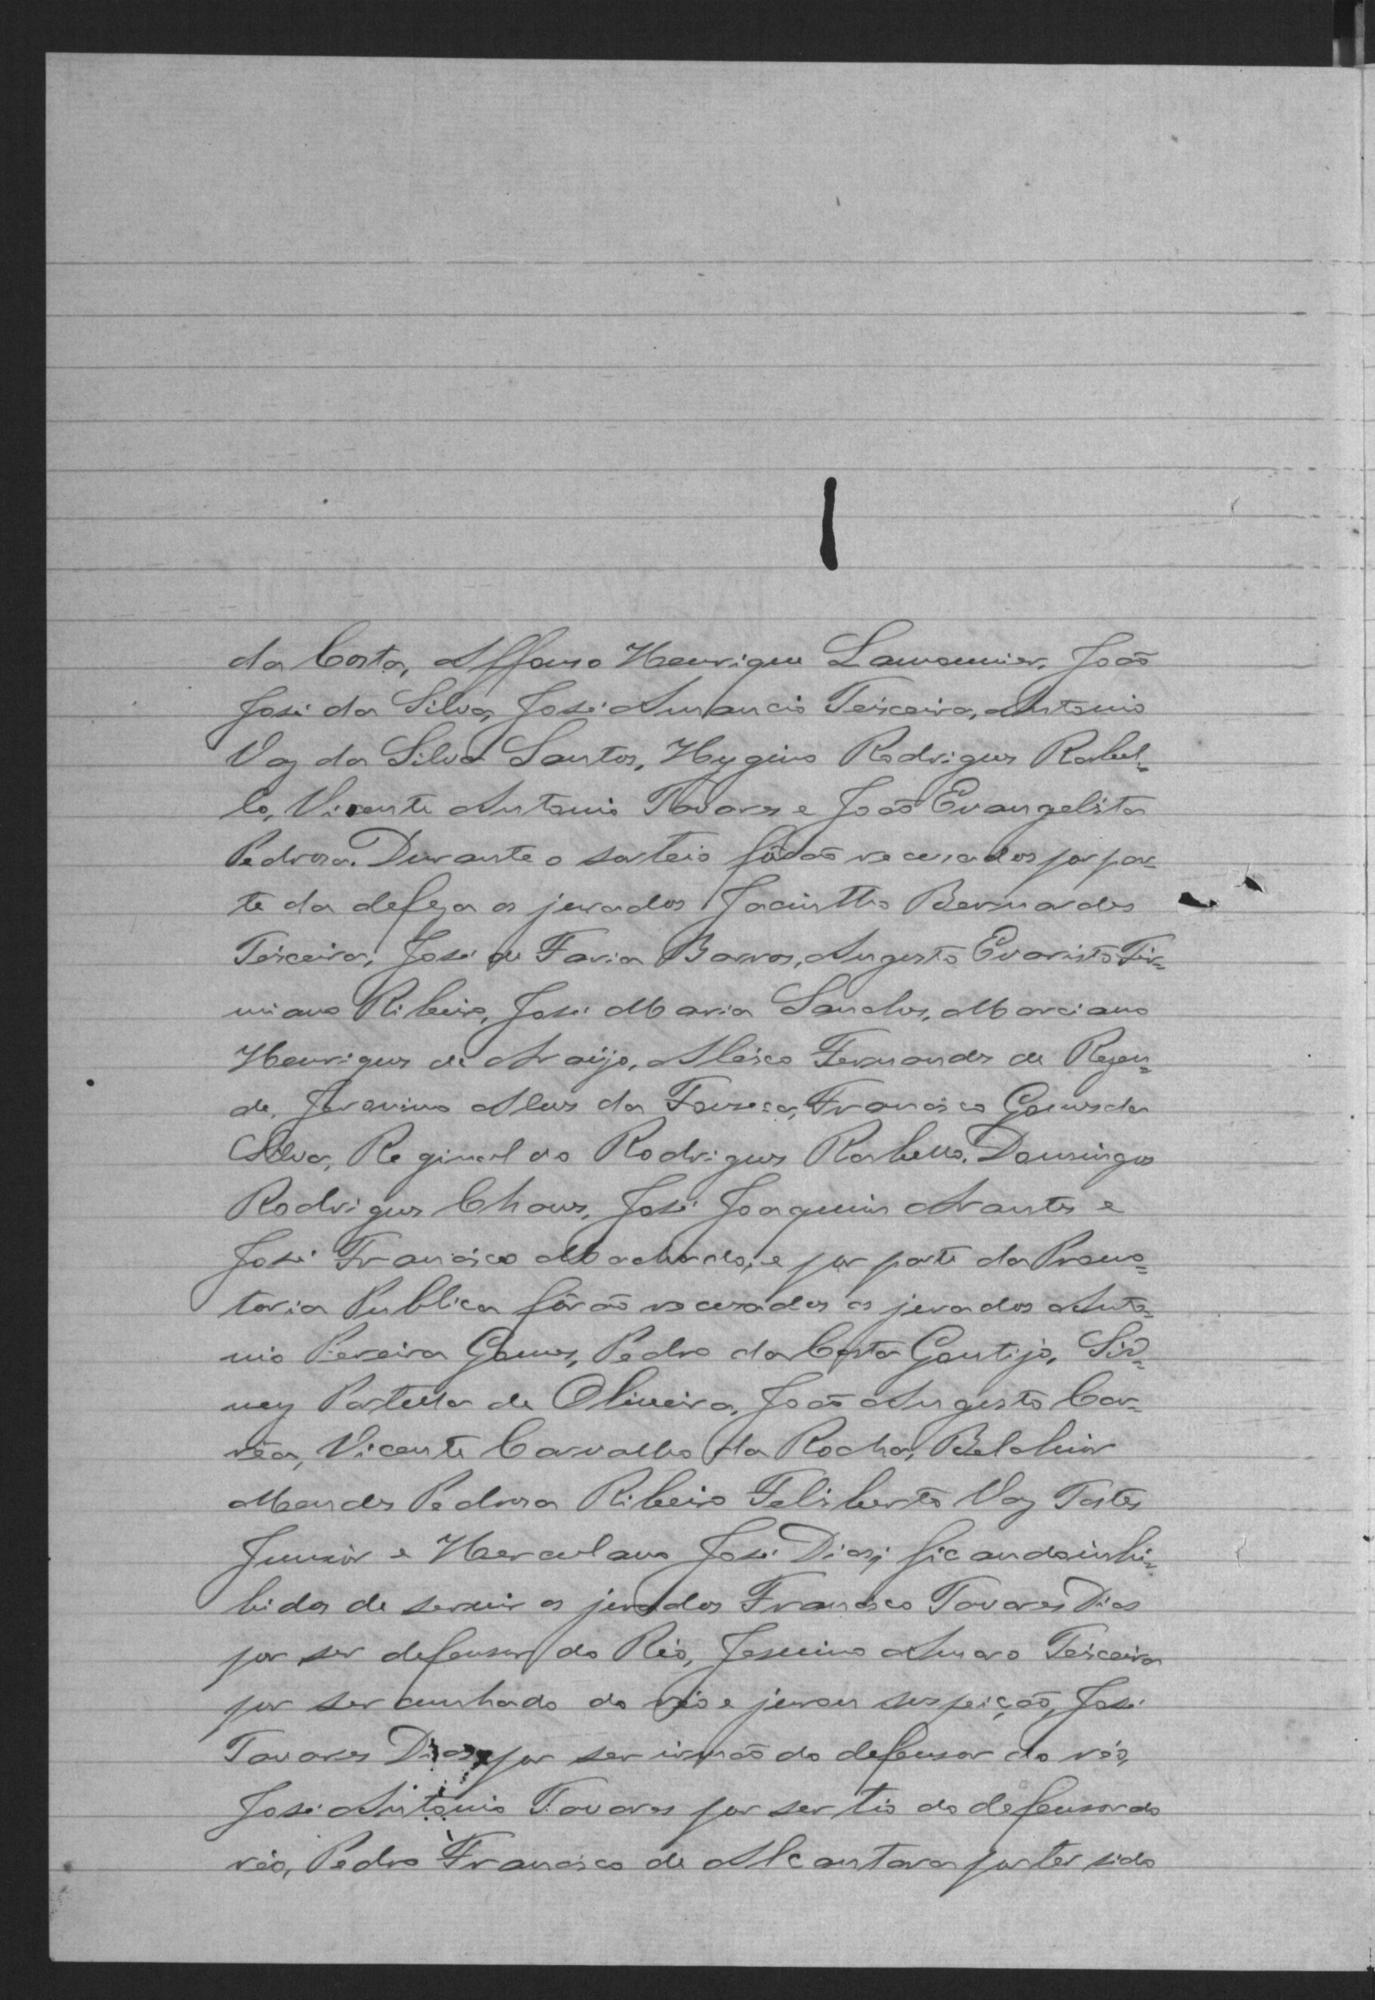 da Costa, Affonso Henrique Lamounier, João
José da Silva, José Amancio Teixeira, Antonio
Vaz da Silva Santos, Hygino Rodrigues Rabel=
lo, Vicente Antonio Tavares e João Evangelista
Pedrosa. Durante o sorteio fôrão recusados por par=
te da defeza os jurados Jacintho Bernardes
Teixeira, José de Faria Barros, Augusto Evaristo Fir=
miano Ribeiro, José Maria Sanches, Marciano
Henriques de Araújo, Aleixo Fernandes de Rezen=
de, Jeronimo Alves da Fonseca, Francisco Gomes da
Silva, Reginaldo Rodrigues Rabello, Domingos
Rodrigues Chaves, José Joaquim Arantes e
José Francisco Machado, e por parte da Promo=
toria Publica fôrão recusados os jurados Anto=
nio Pereira Gomes, Pedro da Costa Gontijo, Sid=
ney Portella de Oliveira, João Augusto Cor=
rêa, Vicente Carvalho da Rocha, Belchior
Mendes Pedrosa Ribeiro Feliberto Vaz Tostes
Junior e Herculano José Dias; ficando inhi=
bidos de servir os jurados Francisco Tavares Dias
por ser defensor do Réo, Jesuino Amaro Teixeira
por ser cunhado do réo e jurou suspeição, José
Tavares Dias por ser irmão do defensor do réo,
José Antonio Tavares por ser tio do defensor do
réo, Pedro Francisco de Alcantara por ter sido